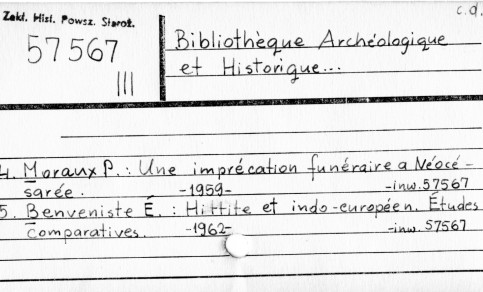 c.d.
Zakł. Hist. Powsz. Staroż.
57567
III
Bibliothèque Archéologique
et Historique...
4. Moraux P. : Une imprécation funéraire a Néocé-
sarée. -1959- -inw. 57567
5. Benveniste É. : Hittite et indo-européen. Études
comparatives. -1962- -inw. 57567